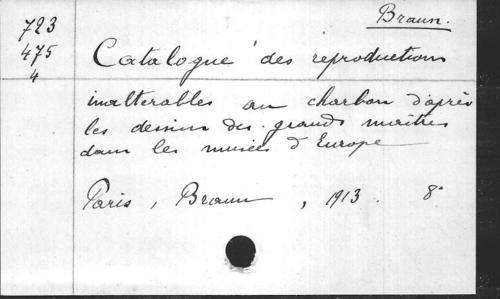 Braun.
723
475
4
Catalogue des reproductions
inaltérables au charbon d'après
les dessins des grands maîtres
dans les musées d'Europe
Paris, Braun, 1913. 8°